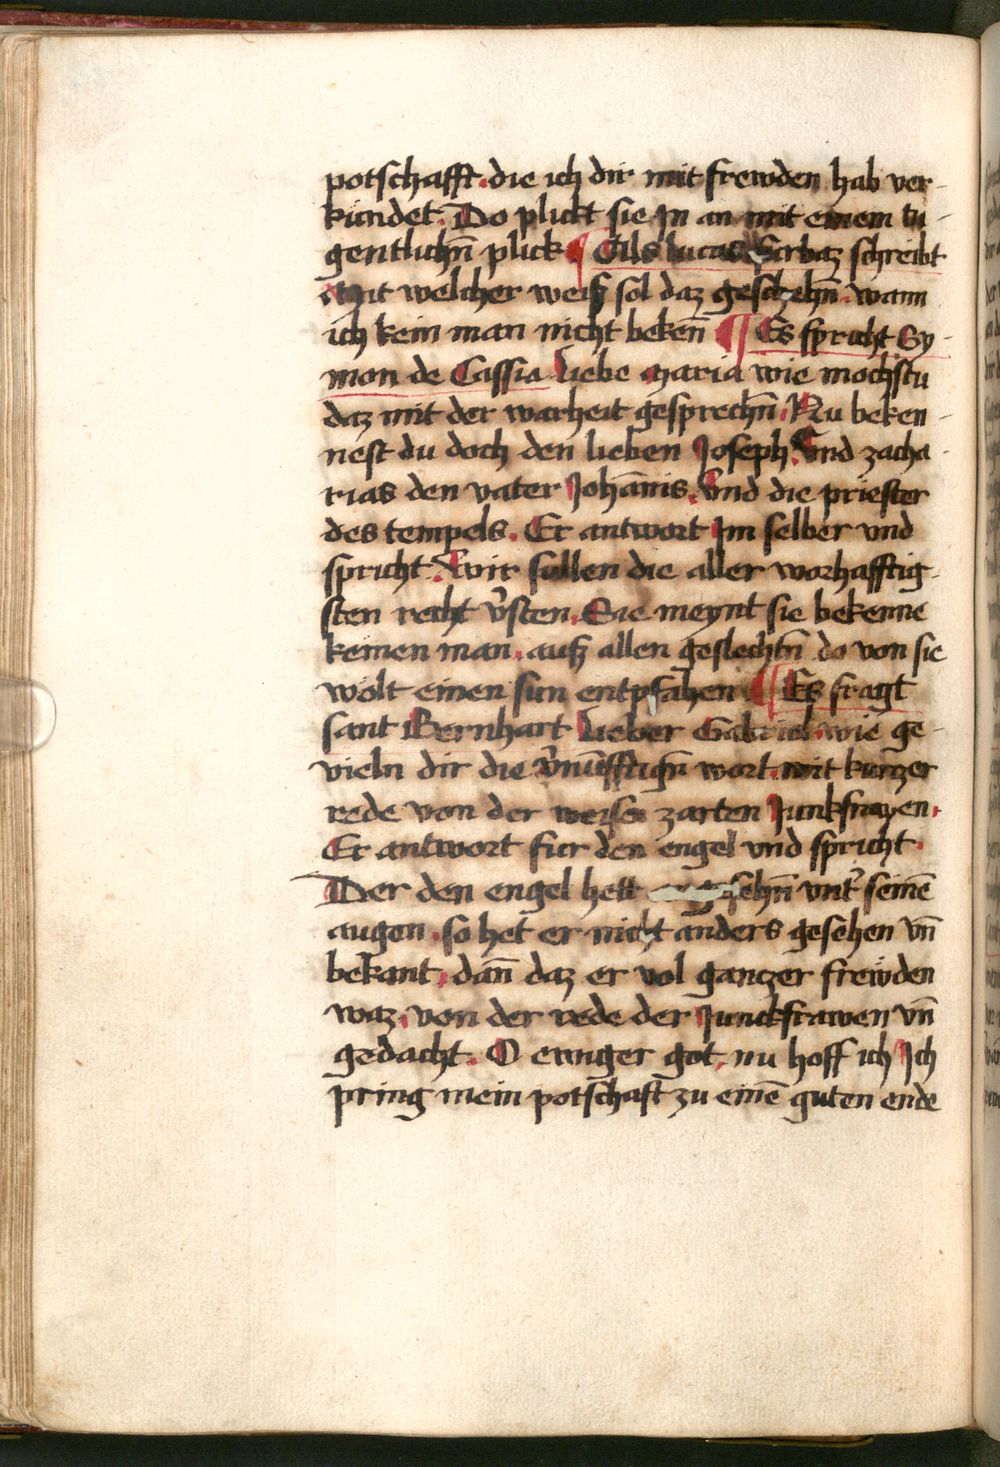 potschafft. die ich dir mit frewden hab ver-
kundet. Do plickt sie Jn an mit einem tu-
gentlichn̄ plick ¶ Als lucas schreibt
Mit welcher weiß sol daz geschehn̄. wann
ich kein man nicht beken̄ ¶ Es spricht Sy-
mon de Cassia liebe maria wie mochstu
daz mit der warheit gesprechn̄. Nu beken-
nest du doch den lieben Joseph. Vnd zacha-
rias den vater Johānis. Vnd die priester
des tempels. Er antwort Jm selber vnd
spricht. Wir sullen die aller worhafftig-
sten recht v̄sten. Sie meynt sie bekenne
keinen man. auß allen geslechtn̄ do von sie
wolt einen sun entpfahen ¶ Es fragt
sant Bernhart lieber Gabriel. wie ge-
vieln dir die v̄nūfftign̄ wort. mit kurczer
rede von der zarten Junkfrawen.
Er antwort fur den engel vnd spricht.
Der den engel hett vnt̄ seinē
augen. so het er nicht anders gesehen vn̄
bekant. dan̄ daz er vol ganczer frewden
waz. von der rede der Junckfrawen vn̄
gedacht. O ewiger got. nu hoff ich Jch
pring mein potschaft zu einē guten ende